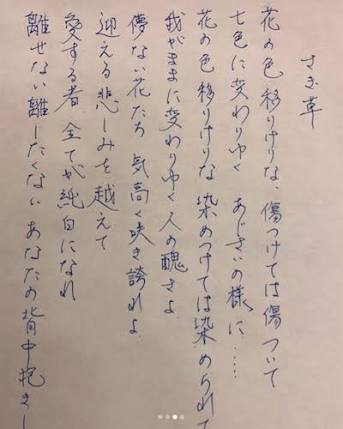 さぎ草
花の色移りけりな、傷つけては傷ついて
七色に変わりゆく あじさいの様に……
花の色移りけりな 染めつけては染められて
我がままに変わりゆく人の醜さよ
儚ない花たち 気高く咲き誇れよ
迎える悲しみを越えて
愛する者 全てが純白になれ
離せない離したくない あなたの背中抱きし